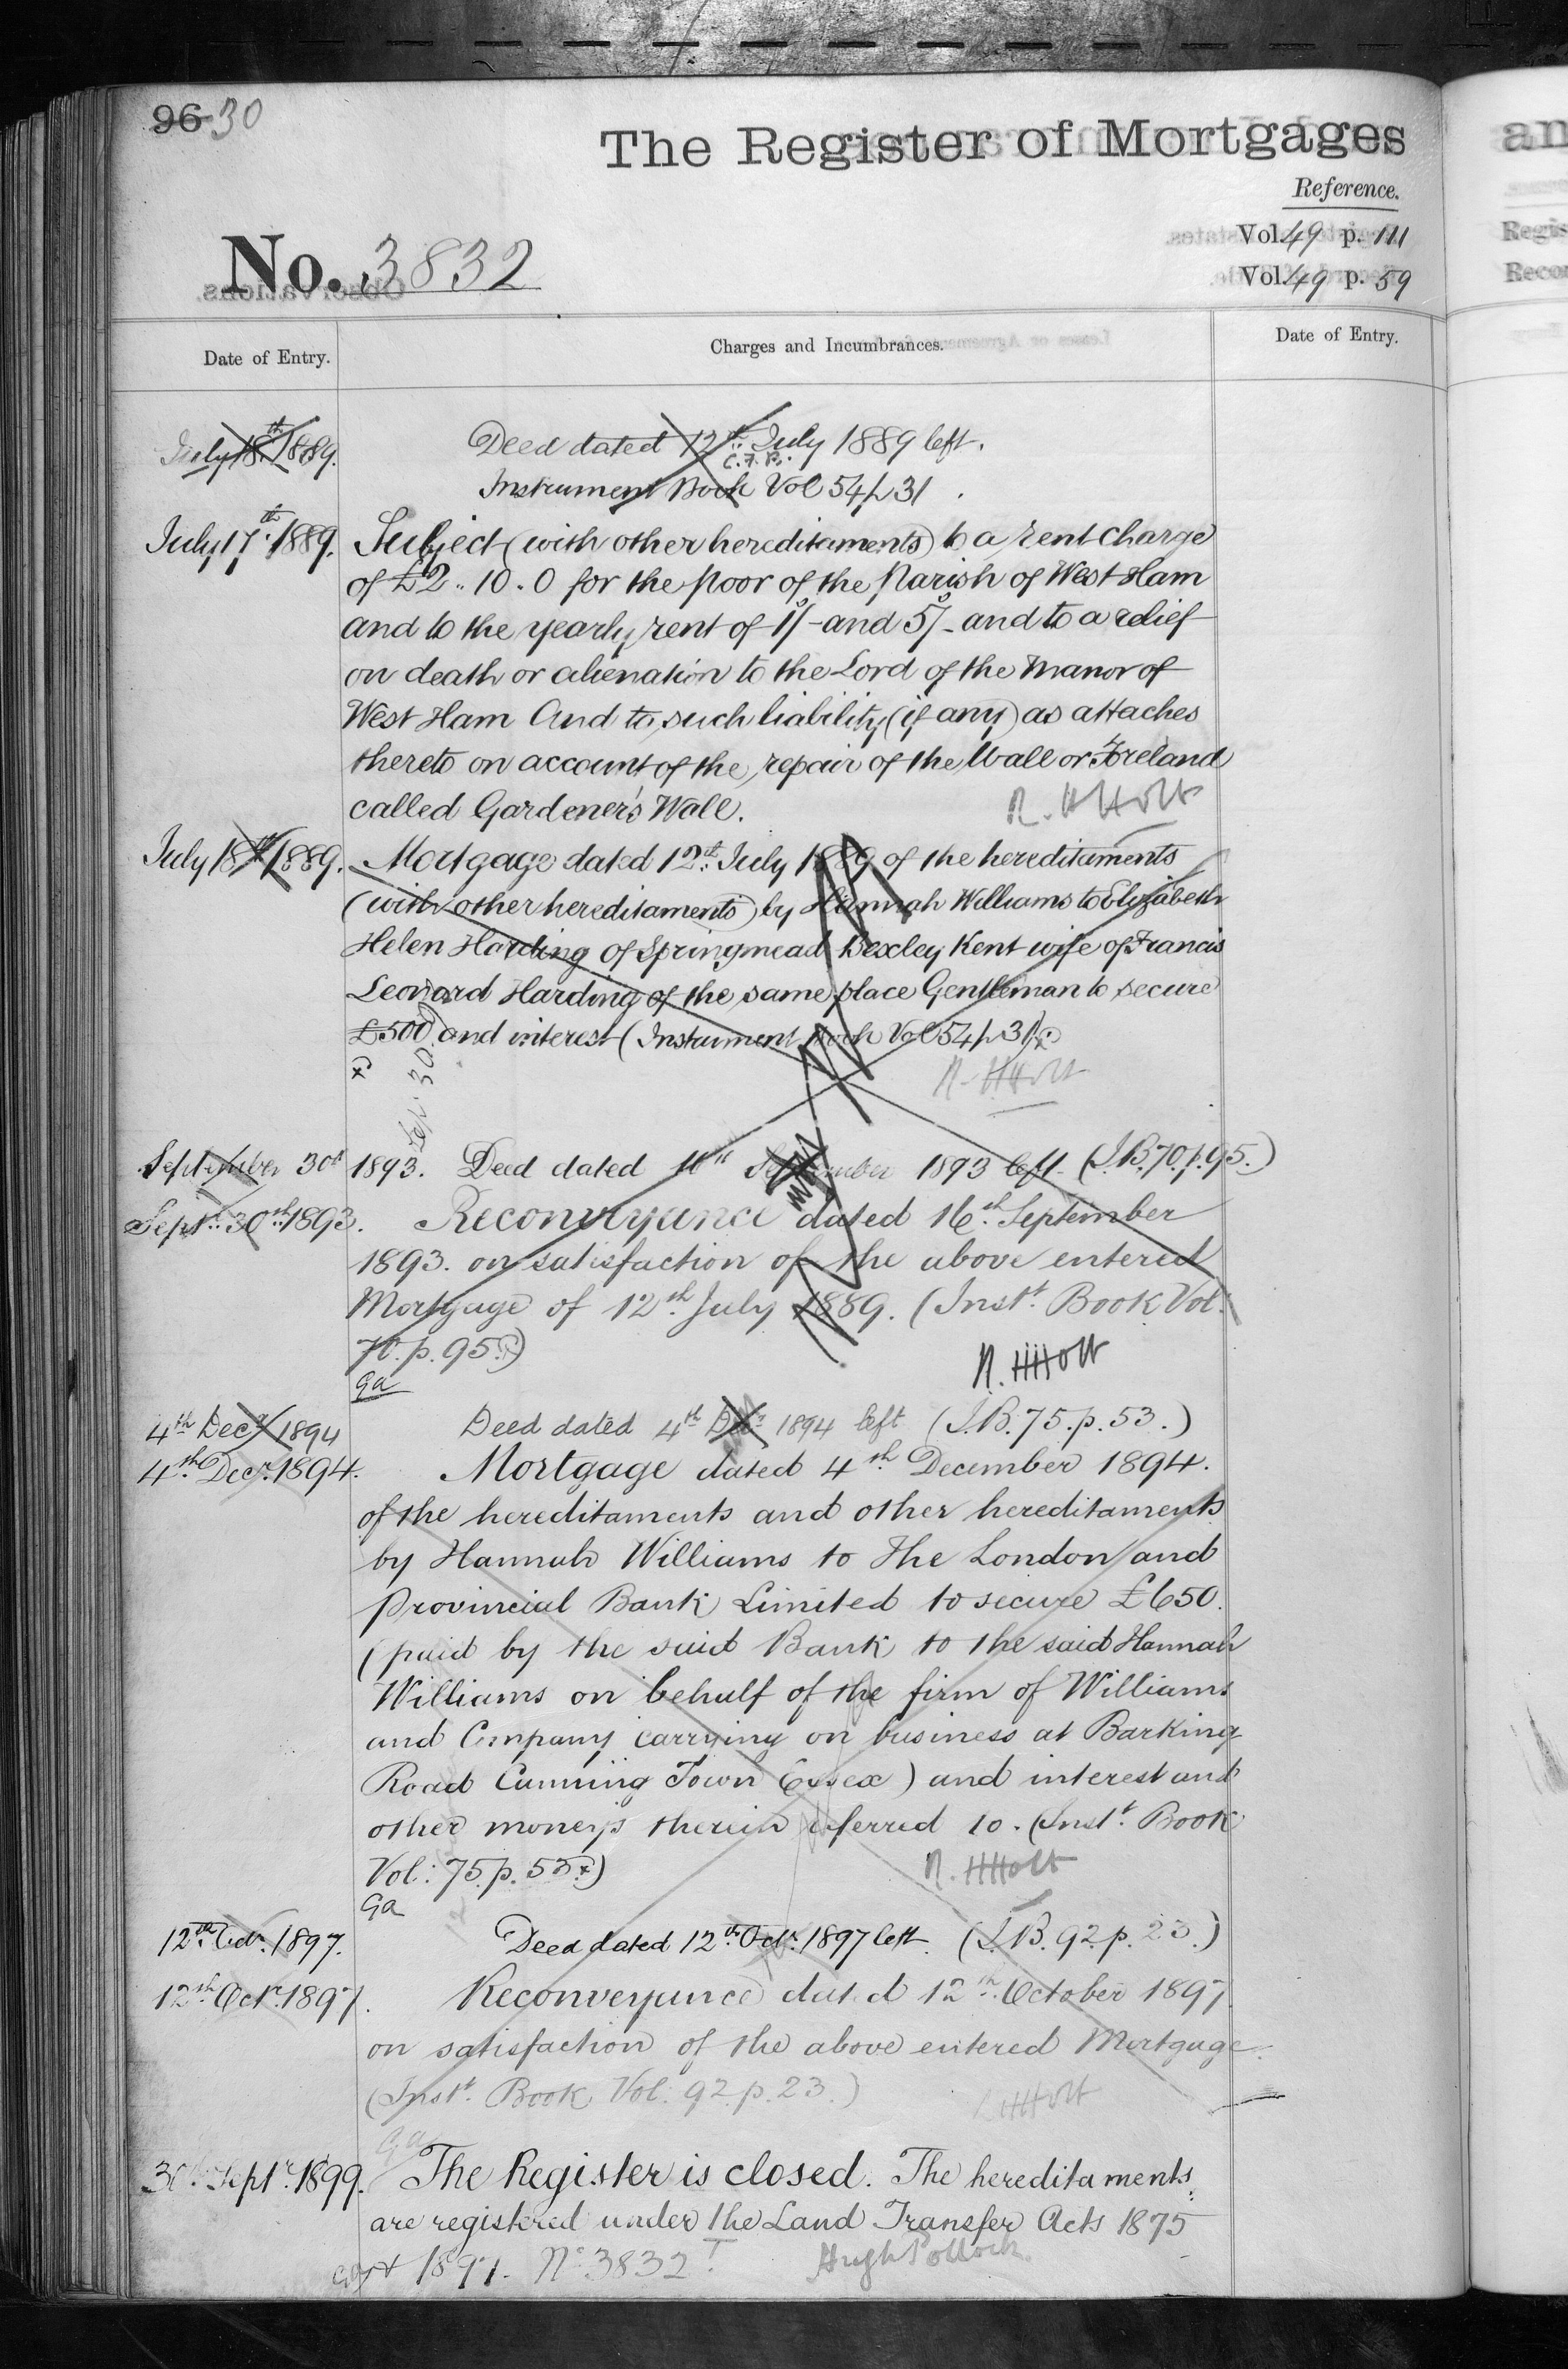 96 30
The Register of Mortgages
Reference.
No. 3832
Vol. 49 p. 111
Vol. 49 p. 59
Date of Entry.
Charges and Incumbrances.
Date of Entry.
July 18th 1889. Deed dated 12th July 1889 left.
C.F.B.
Instrument Book Vol 54 p 31.
July 17th 1889. Subject (with other hereditaments) to a rent charge
of £2..10.0 for the poor of the Parish of West Ham
and to the yearly rent of 1s/- and 5s/- and to a relief
on death or alienation to the Lord of the Manor of
West Ham And to such liability (if any) as attaches
thereto on account of the repair of the Wall or Foreland
called Gardener's Wall.
R. H Holt
July 18th 1889. Mortgage dated 12th July 1889 of the hereditaments
(with other hereditaments) by Hannah Williams to Elizabeth
Helen Harding of Springmead Bexley Kent wife of Francis
Leonard Harding of the same place Gentleman to secure
£500 and interest (Instrument Book Vol 54 p 31)
R. H Holt
September 30th 1893. Deed dated 16th September 1893 left (I.B. 70. p. 95.)
Sept. 30th 1893. Reconveyance dated 16th September
1893. on satisfaction of the above entered
Mortgage of 12th July 1889. (Inst. Book Vol:
70. p. 95.)
ga
R. H Holt
4th Decr 1894 Deed dated 4th Decr 1894 left (I.B. 75. p. 53.)
4th Decr. 1894. Mortgage dated 4th December 1894.
of the hereditaments and other hereditaments
by Hannah Williams to The London and
Provincial Bank Limited to secure £650.
(paid by the said Bank to the said Hannah
Williams on behalf of the firm of Williams
and Company carrying on business at Barking
Road Canning Town Essex) and interest and
other moneys therein referred to. (Inst. Book
Vol: 75. p. 53.)
ga
R. H Holt
12th Octr. 1897. Deed dated 12th Octr. 1897 left. (I.B. 92. p. 23.)
12th Octr. 1897. Reconveyance dated 12th October 1897
on satisfaction of the above entered Mortgage.
(Inst. Book Vol: 92. p. 23.)
ga
H Holt
30th Septr. 1899. The Register is closed. The hereditaments
are registered under the Land Transfer Acts 1875
& 1897. No. 3832
Hugh Pollock.